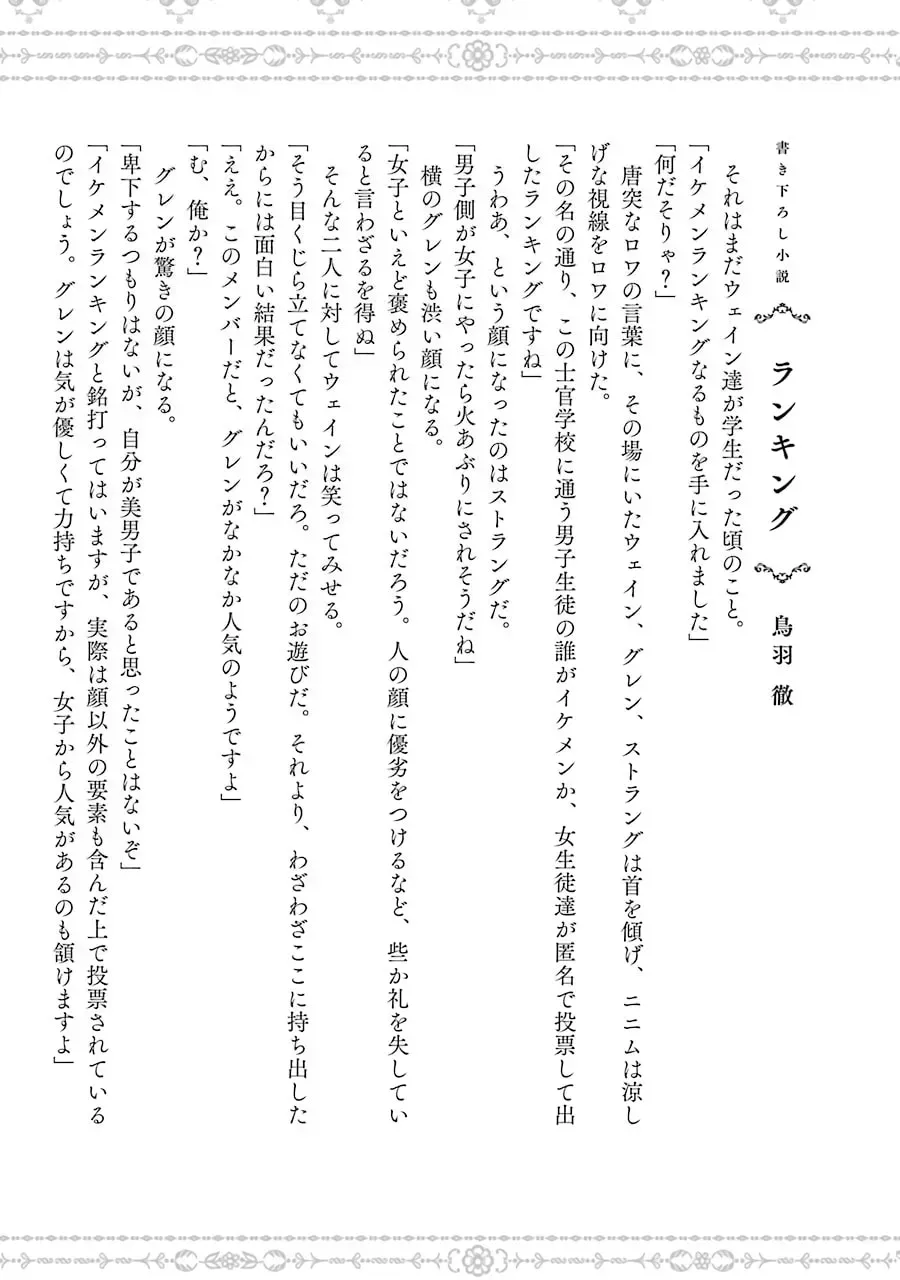 書き下ろし小説
ランキング
鳥羽 徹
それはまだウェイン達が学生だった頃のこと。
「イケメンランキングなるものを手に入れました」
「何だそりゃ？」
唐突なロワの言葉に、その場にいたウェイン、グレン、ストラングは首を傾げ、ニニムは涼し
げな視線をロワに向けた。
「その名の通り、この士官学校に通う男子生徒の誰がイケメンか、女生徒達が匿名で投票して出
したランキングですね」
うわあ、という顔になったのはストラングだ。
「男子側が女子にやったら火あぶりにされそうだね」
横のグレンも渋い顔になる。
「女子といえど褒められたことではないだろう。人の顔に優劣をつけるなど、些か礼を失してい
ると言わざるを得ぬ」
そんな二人に対してウェインは笑ってみせる。
「そう目くじら立てなくてもいいだろ。ただのお遊びだ。それより、わざわざここに持ち出した
からには面白い結果だったんだろ？」
「ええ。このメンバーだと、グレンがなかなか人気のようですよ」
「む、俺か？」
グレンが驚きの顔になる。
「卑下するつもりはないが、自分が美男子であると思ったことはないぞ」
「イケメンランキングと銘打ってはいますが、実際は顔以外の要素も含んだ上で投票されている
のでしょう。グレンは気が優しくて力持ちですから、女子から人気があるのも頷けますよ」